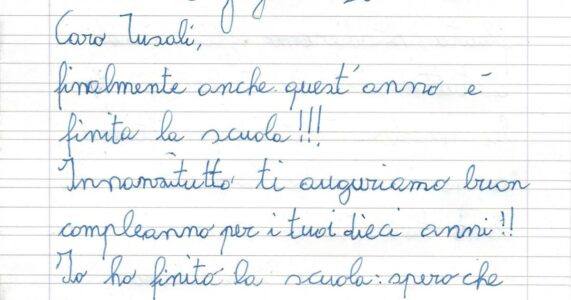 Caro Tusali,
finalmente anche quest'anno è
finita la scuola!!!
Innanzitutto ti auguriamo buon
compleanno per i tuoi dieci anni!!
Io ho finito la scuola: spero che